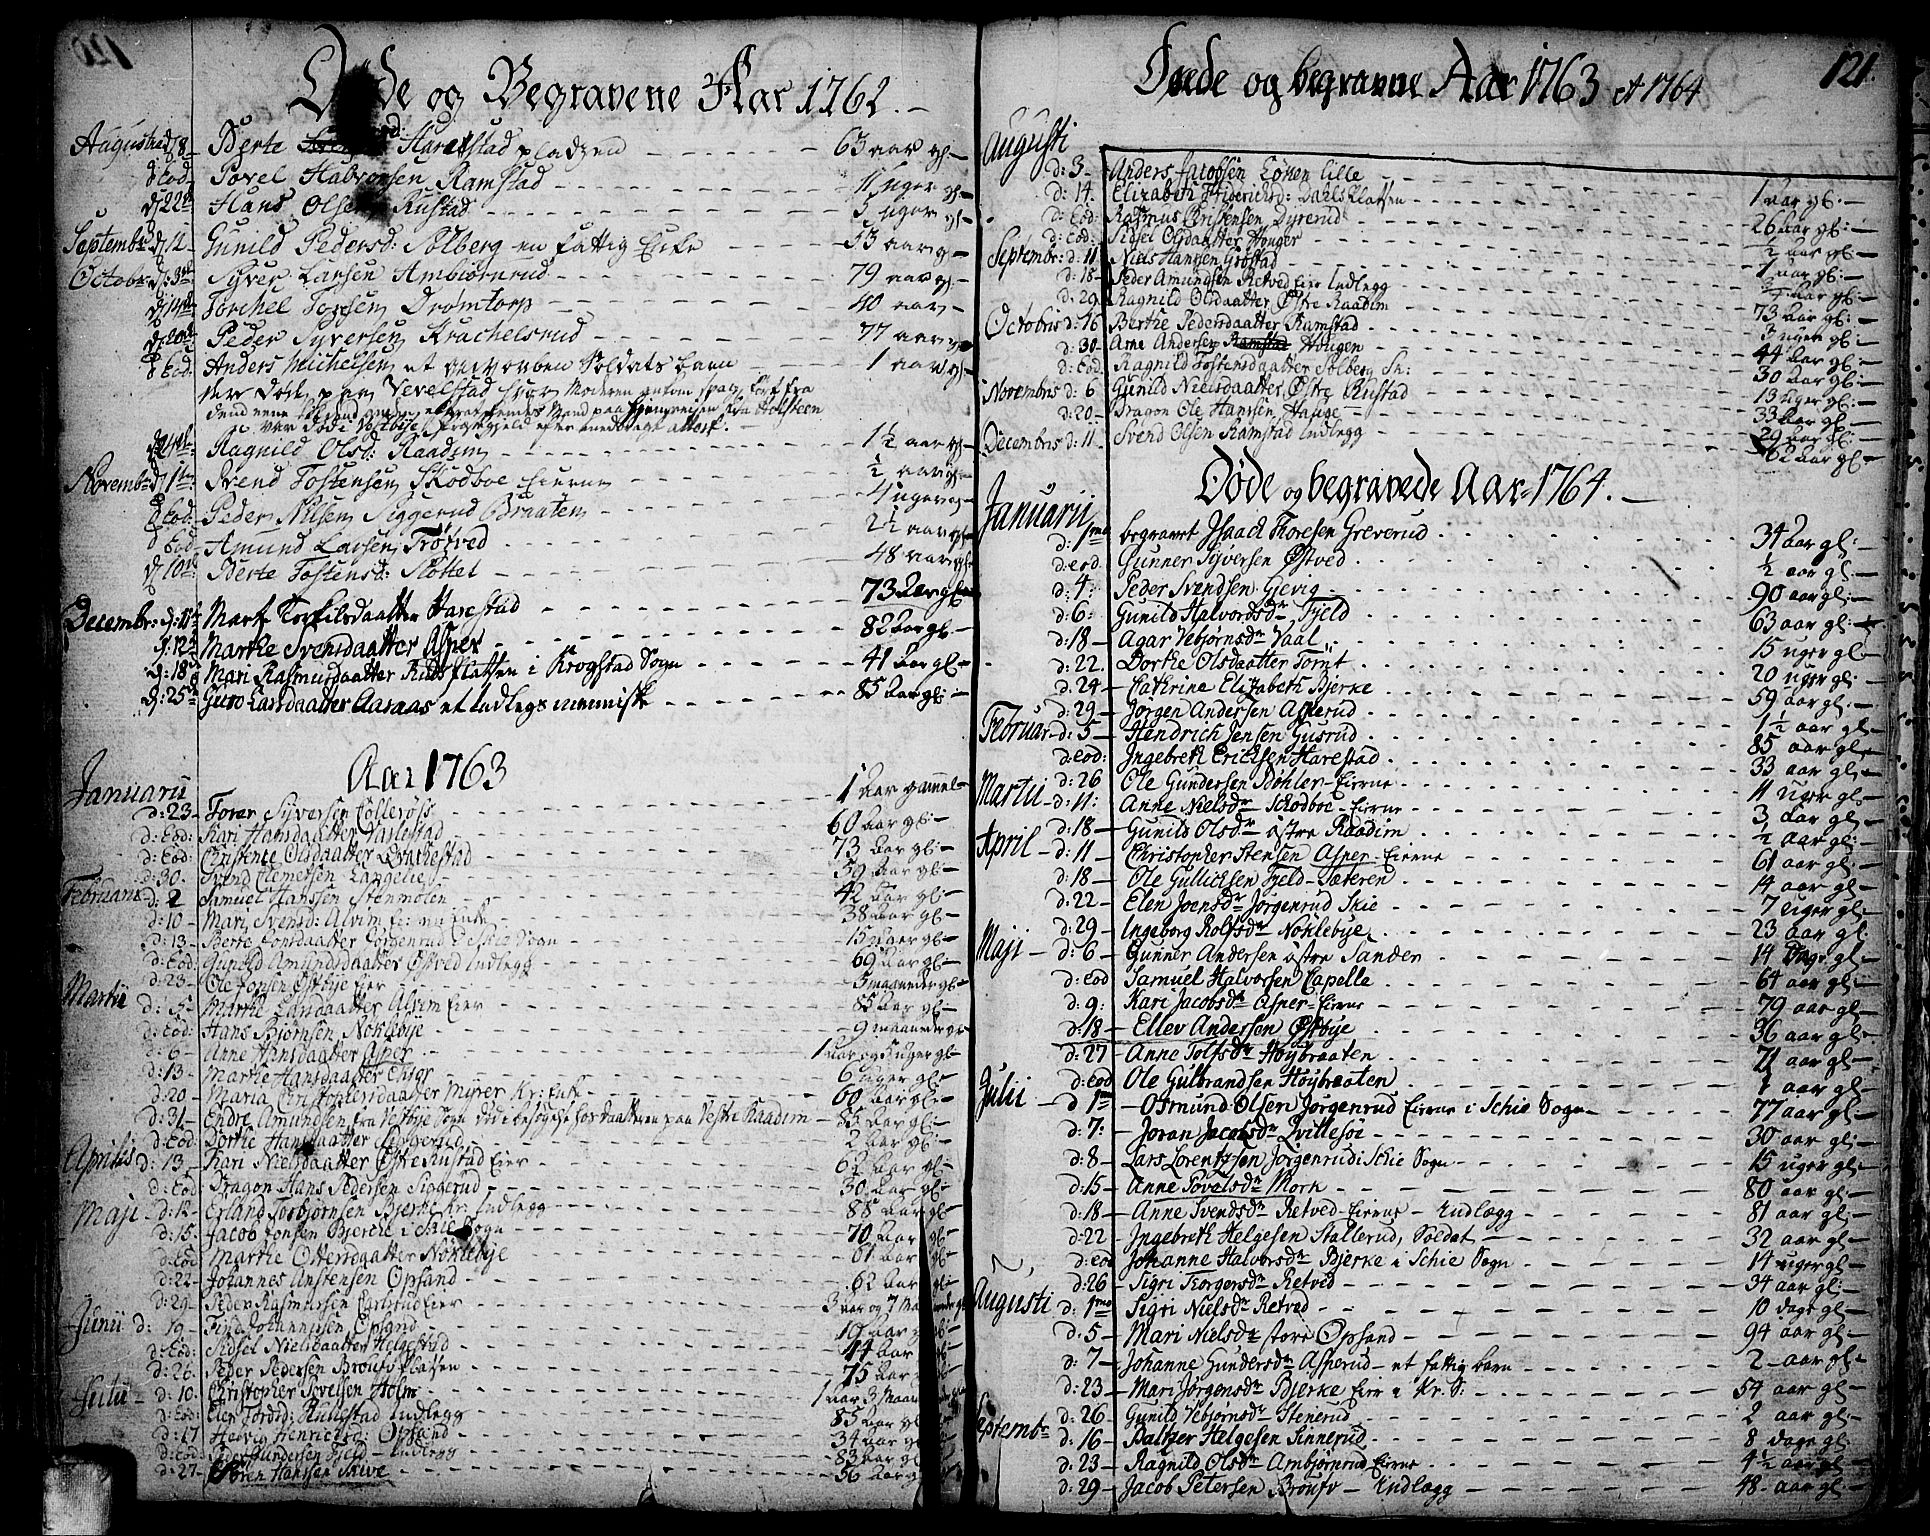 120
Døde og Begravene Aar 1762.
Augusti d. 8 Berte Harestad pladzen 63 aar gl:
d Eod Povel Halvorsen Ramstad 11 uger gl
d 22 Hans Olsen Rustad 5 uger gl
Septembr d. 12 Gunild Pedersd: Solberg en fattig Enke 53 aar gl
Octobr d: 3 Syver Larsen Ambiørnrud 79 aar gl
Torchel Torsen Dromtorp 40 aar
Peder Syversen Krachelsrud 77 aar gl
d Eod: Anders Michelsen et Soldats barn 1 aar gl
der døde paa Vevelstad hvor Moderen
Ragnild Olsd: Raadim 1½ aar gl
Novembr d 1 Svend Tostensen Skodboe Eierne ½ aar gl
d Eod: Peder Nilsen Siggerud Braaten 4 uger gl
d Eod Amund Larsen Trøtved 2½ aar gl
d 10 Berte Tostensd: Slottet 48 aar gl
Decembr: d: Marte Torkilsdaatter Harestad 73 aar gl
d. 12 Marthe Svensdaatter Asper 82 aar gl
d: 18 Mari Rasmusdaatter Rudsflatten i Krogstad Sogn 41 aar gl
d: 25 Guro Larsdaatter Aaraas et Indlegs menniske 85 aar gl:
Aar 1763
Januarii
d: 23 Torer Syversen Collerøss 1 aar gammel
d: Eod: Kari Hansdaatter Varlestad 60 aar gl:
d: Eod: Christente Olsdaatter Krachestad 73 aar gl:
d: 30. Svend Clemetsen Langelie 59 aar gl:
Februarii d: 2 Samuel Hanssen Stenmolen 42 aar gl:
d: 10 Mari Svensd: Alvim en Enke 38 aar gl:
d: 13 Berte Jonsdaatter Jørgenrud Skie Sogn 15 aar gl:
d: Eod: Gunild Amundsdaatter Østved Indlegg 69 aar gl
d: 23 Ole Jonsen Østbye Eier 5 maaneder gl
Martii d: 5 Marthe Larsdaatter Alvim Eier 85 aar gl
d: Eod: Hans Bjørnsen Noklebye 9 maaneder gl
d: 6 Anne Hansdaatter Asper 1 aar og 5 uger gl
d: 13 Marthe Hansdaatter Enger 6 uger gl
d: 20 Maria Christophersdaatter Myrer Kr: Enke 60 aar gl
d: 31 Endre Amundsen fra Vestbye Sogn død i besøgelse hos Daatteren paa Vestre Raadim 85 aar gl
d: Eod: Dorthe Hansdaatter Siggerud 2 aar gl
Aprilis d: 13 Kari Nielsdaatter Østre Rustad Eier 62 aar gl:
d: Eod: Dragon Hans Pedersen Siggerud 30 aar gl:
Maji d: 12 Erland Torbjørnsen Bjerke Kr: Indlegg 88 aar gl
d: 15 Jacob Jonsen Bjercke i Skie Sogn 70 aar gl
d: Eod Marthe Ottersdaatter Noklebye 61 aar gl
d: 22 Johannes Anstensen Opsand 62 aar gl
d: 29 Peder Rasmussen Carlsrud Eier 3 aar og 7 Maaneder gl
Junii d: 19 Find Johannessen Opsand 10 aar gl
d: Eod: Sidsel Nielsdaatter Helgestad 44 aar gl
d: 26 Peder Pedersen Brønsv. Platsen 75 aar gl
Julii d: 10 Christopher Povelsen Holm 1 aar 3 Maaneder gl
d: Eod: Elen Tordsd: Rullestad Indlegg 85 aar gl
d: 17 Helvig Henrichsd: Opsand 34 aar gl
d: Eod: Peder Gundersen Fjeld Indlegg 83 aar gl
d: 27 Soren Hanssen Skive 56 aar gl
Døede og begravne Aar 1763 et 1764
121.
Augusti
d: 3 Anders Jacobsen Lønen lille 1 aar gl:
d: 14 Elizabeth Friderichsd: Dahls Klatsen 26 aar gl:
d: Eod: Rasmus Christensen Dyrerud ½ aar gl:
d: Eod: Sidsel Olsdaatter Houger 1 aar gl:
Septembr: d: 11 Niels Hanssen Grøstad
d: 18 Peder Amundsen Retved Eier Indlegg 73 aar gl:
d: 29 Ragnild Olsdaatter Østre Raadim 3 uger gl:
Octobris d: 16 Berthe Pedersdaatter Ramstad 44 aar gl:
d: 30 Arne Andersen Ramstad Hougen 30 aar gl:
d: Eod: Ragnild Tostensdaatter Solberg Sk: 13 uger gl:
Novembris d: 6 Gunild Nielsdaatter Østre Rustad 33 aar gl:
d: 20 Dragon Ole Hanssen Hauge 29 aar gl:
Decembris d: 11 Svend Olsen Ramstad Indlegg 62 aar gl:
Døde og begravede Aar 1764.
Januarii
d: 1mo begravet Jsaach Thoresen Greverud 34 aar gl:
d: Eod: Gunner Syversen Østved ½ aar gl:
d: 4. Peder Svendsen Gjevig 90 aar gl:
d: 6: Gunild Halvordsdr Fjeld 63 aar gl:
d: 18 Agar Vebjørnsdr Vaal 15 uger gl:
d: 22. Dorthe Olsdaatter Tomt 20 uger gl:
d: 24 Cathrine Elizabeth Bjerke 59 aar gl:
d: 29 Jørgen Andersen Aslerud 1½ aar gl:
Februar. d: 5 Hendrich Jensen Gusrud 85 aar gl:
d: Eod: Jngebreth Erichsen Harestad 33 aar gl:
d: 26 Ole Gundersen Bøhler Eierne 11 uger gl:
Martii d: 11: Anne Nielsdr Skodboe Eierne 3 aar gl:
d: 18 Gunild Olsdr østre Raadim ½ aar gl:
April d: 11 Christopher Stensen Asper Eierne 61 aar gl:
d: 18 Ole Gullichsen Fjeld Sæteren 14 aar gl:
d: 22 Elen Joensdr Jørgenrud Skie 7 uger gl:
d: 29 Jngeborg Rolfsdr Noklebye 23 aar gl:
Maji d: 6 Gunner Andersen østre Sander 14 dage gl:
d: Eod Samuel Halvorsen Capelle 64 aar gl:
d: 9: Kari Jacobsdr Asper Eierne 79 aar gl:
d: 18 Ellev Andersen Østbye 36 aar gl:
d: 27 Anne Tolfsdr Høybraaten 71 aar gl:
d: Eod Ole Gulbrandsen Høybraaten 1 aar gl:
Julii d 1mo Osmund Olsen Jørgenrud Eierne i Schie Sogn 77 aar gl:
d: 7: Joran Jacobsdr Qvillesøi 30 aar gl:
d: 8 Lars Lorentzsen Jørgenrud i Schie Sogn 15 uger gl:
d: 15 Anne Povelsdr Mork 80 aar gl:
d: 18 Anne Svendsdr Retved Eierne Indlægg 81 aar gl:
d: 22 Jngebreth Helgesen Stallerud, Soldat 32 aar gl:
d: Eod Johanne Halvorsdr Bjerke i Schie Sogn 14 uger gl:
d: 26 Sigri Torgersdr Retved 34 aar gl:
Augusti d: 1mo Sigri Nielsdr Retved 10 dage gl:
d: 5 Mari Nielsdr store Opsand 94 aar gl:
d: 7 Johanne Gundersdr Asperud et fattig barn 2 aar gl:
d: 23 Mari Jørgensdr Bjerke Eier i Kr. S: 54 aar gl:
d: 26 Gunild Vebjørnsdr Stenerud 2 aar gl:
Septembr d: 16 Baltzer Helgesen Sinnerud 8 dage gl:
d: 23 Ragnild Olsdr Ambjørnrud Eierne 4½ aar gl:
d: 29 Jacob Petersen Brønsv Indlægg 48 aar gl: